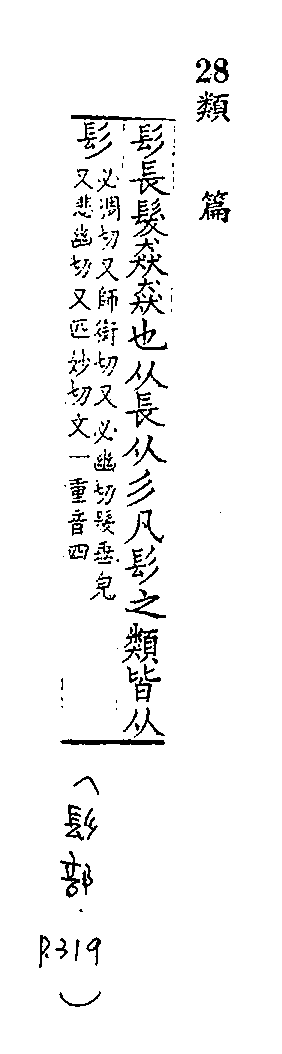 28 類篇
髟長髮猋猋也从長从彡凡髟之類皆从
髟必凋切又師銜切又必幽切髮垂皃
又悲幽切又匹妙切文一重音四
(髟部.
P.319)